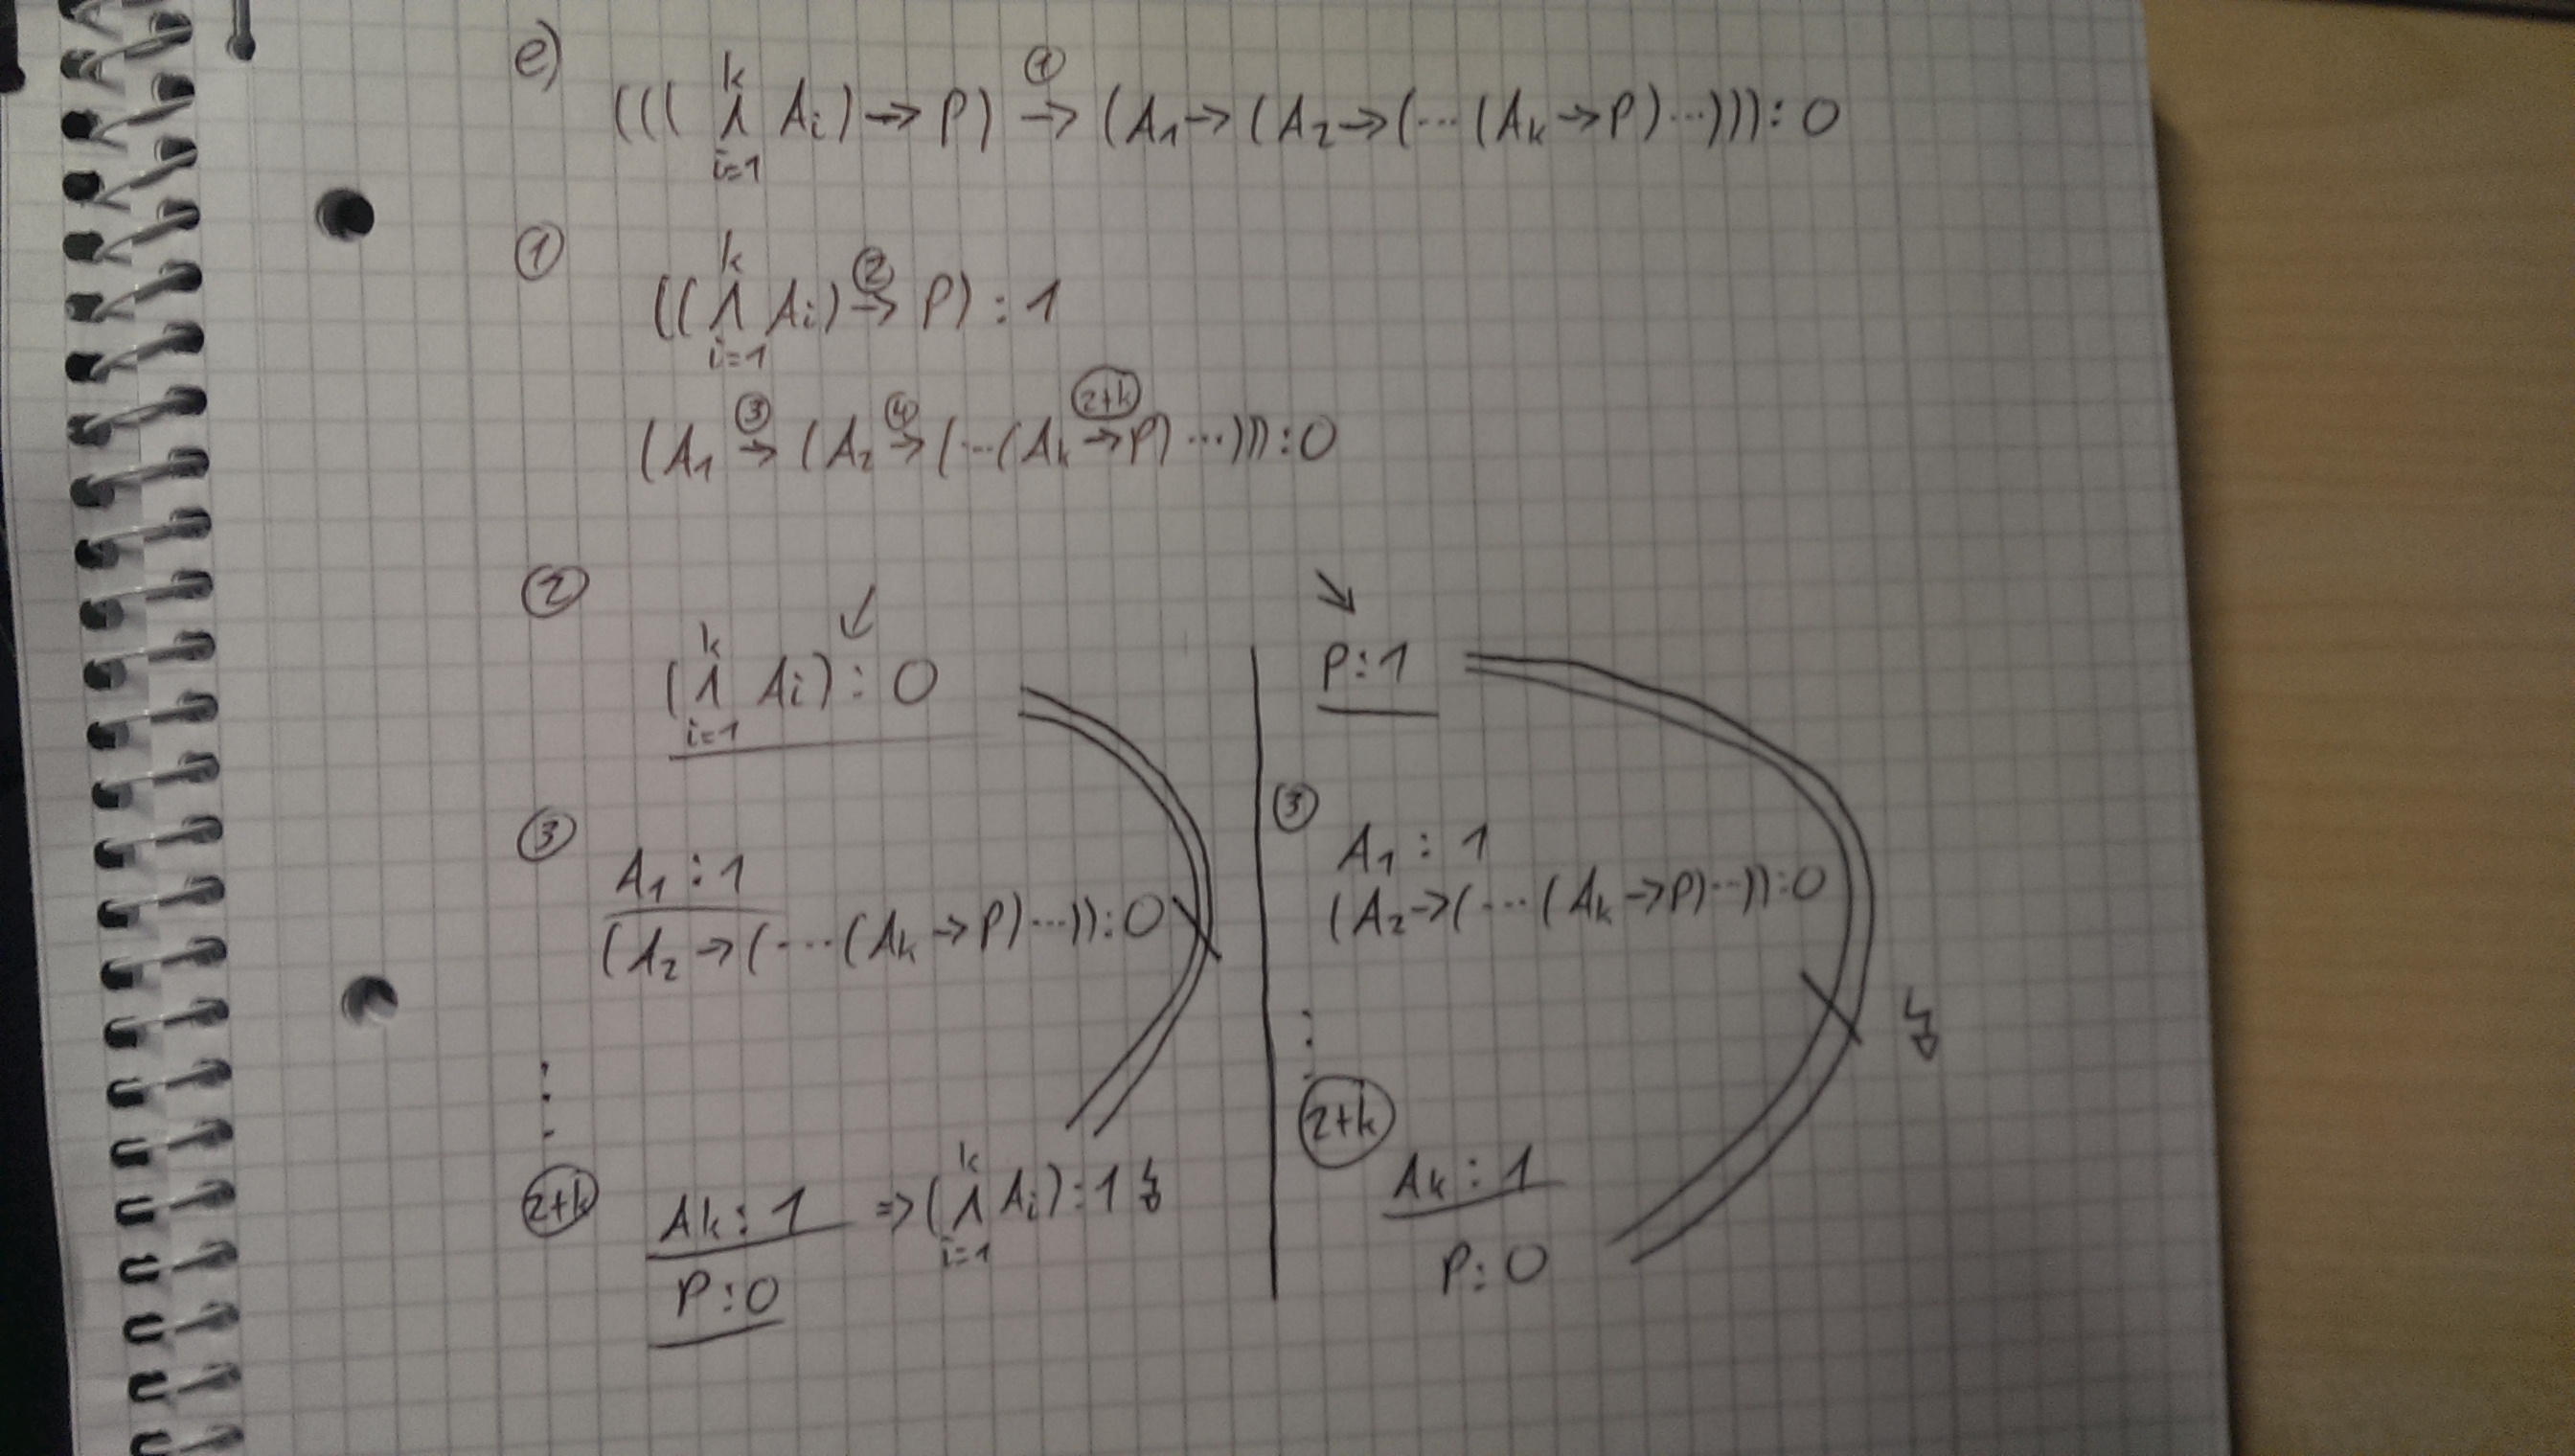 e)
(((⋀_{i=1}^{k} A_i) → P) →^{①} (A_1 → (A_2 → (··· (A_k → P) ···))) : 0
①
((⋀_{i=1}^{k} A_i) →^{②} P) : 1
(A_1 →^{③} (A_2 →^{④} (··· (A_k →^{(2+k)} P) ···))) : 0
②
↙
(⋀_{i=1}^{k} A_i) : 0
③
A_1 : 1
(A_2 → (···· (A_k → P) ···)) : 0
⋮
(2+k)
A_k : 1 ⇒ (⋀_{i=1}^{k} A_i) : 1 ↯
P : 0
↘
P : 1
③
A_1 : 1
(A_2 → (···· (A_k → P) ···)) : 0
⋮
↯
(2+k)
A_k : 1
P : 0